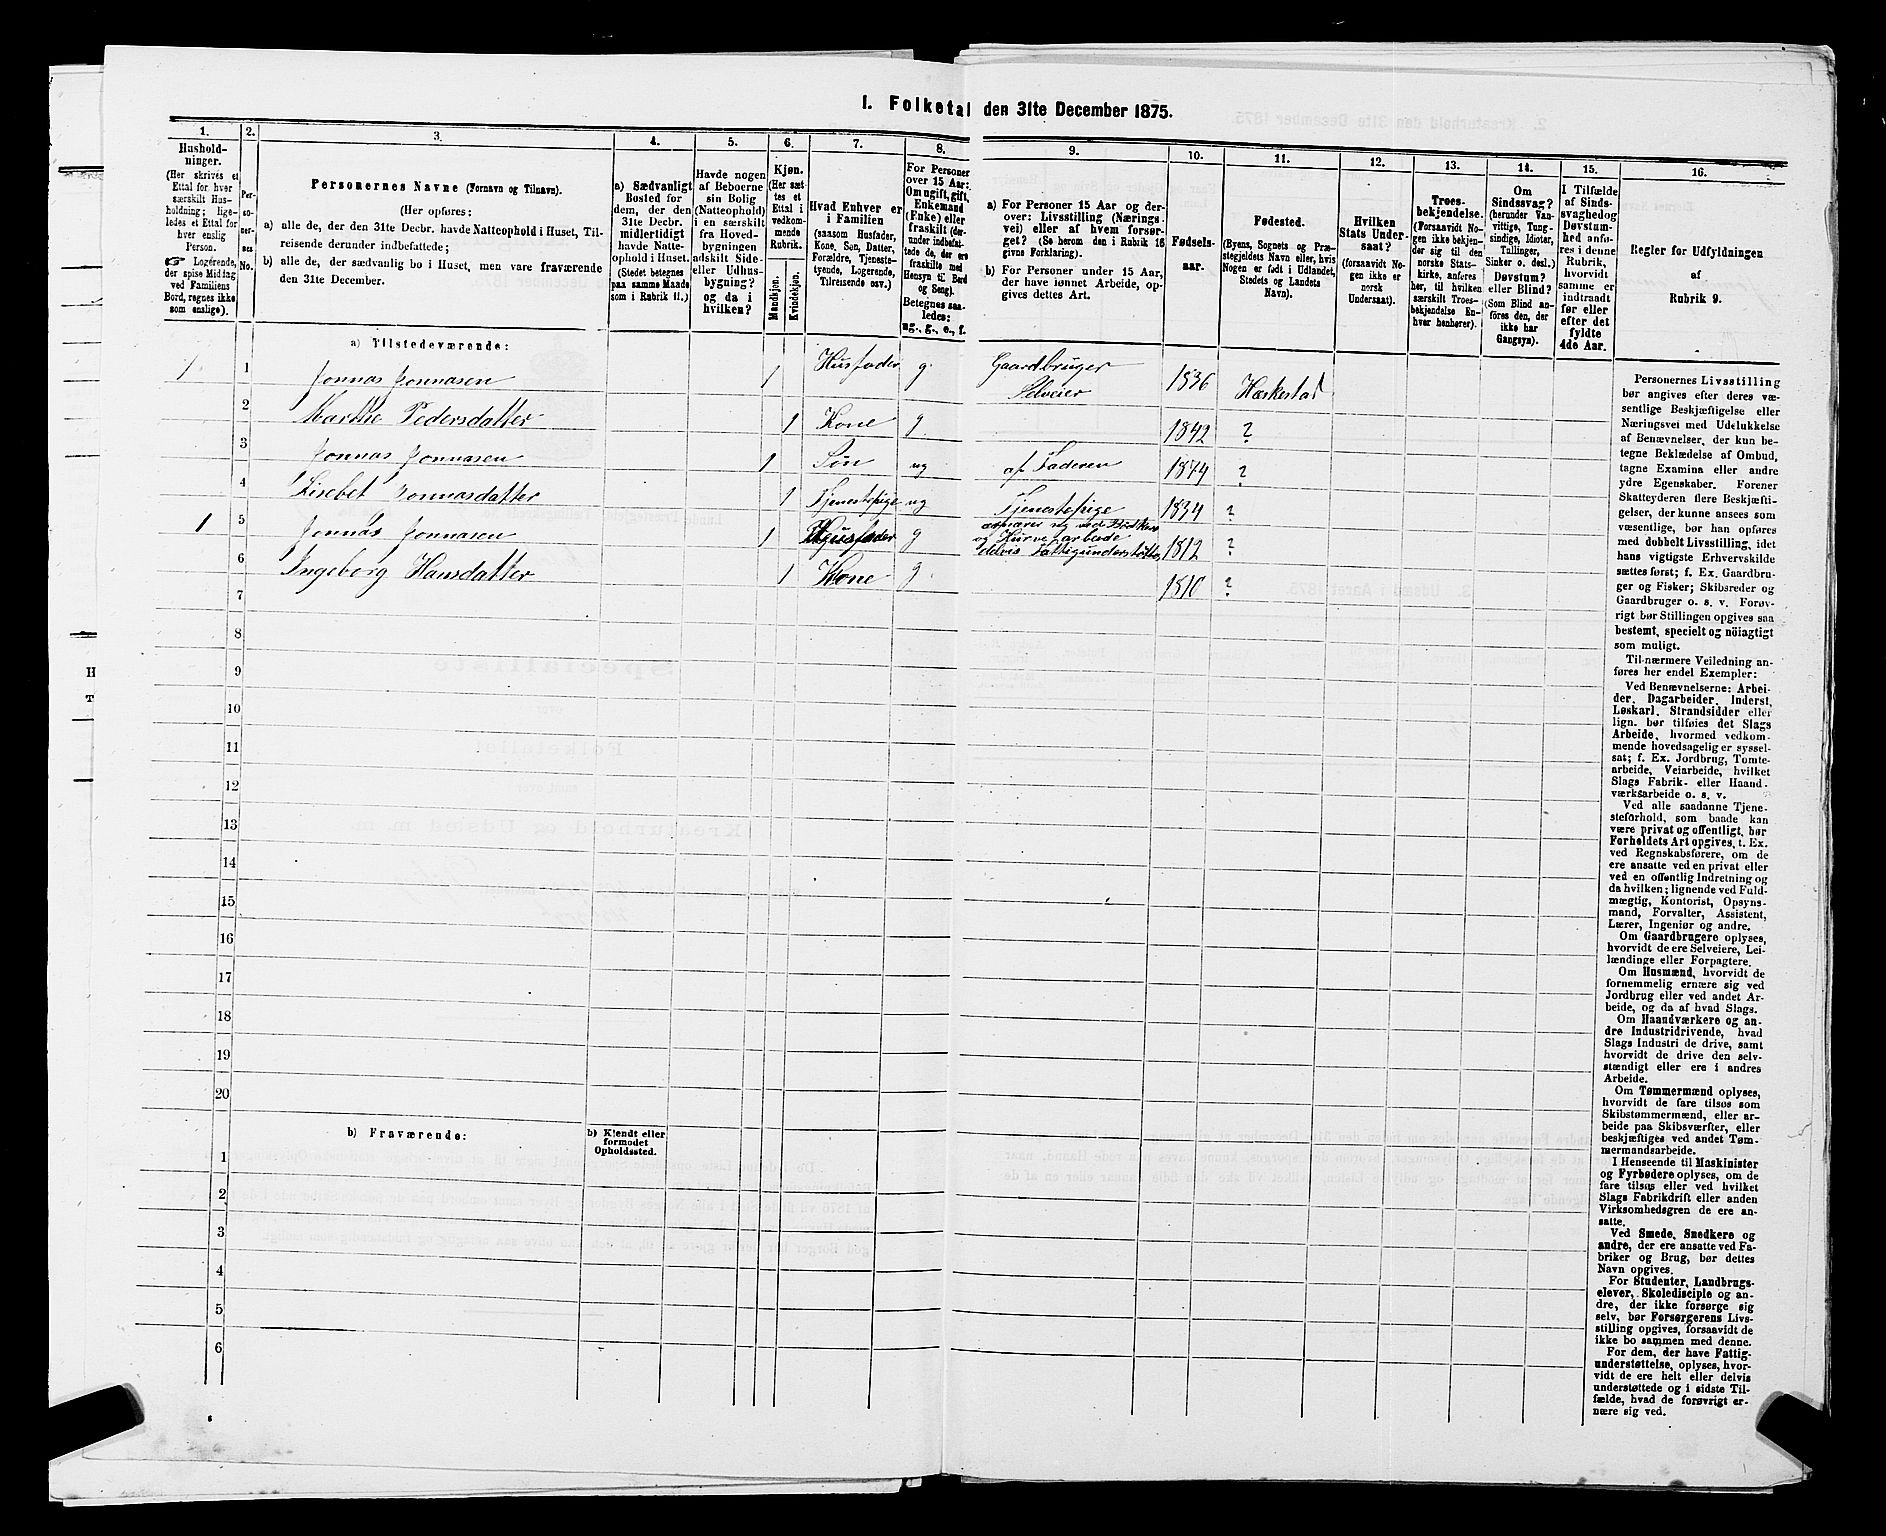 I. Folketal den 31te December 1875.
1.
Hushold-
ninger.
(Her skrives et
Ettal for hver
særskilt Hus-
holdning; lige-
ledes et Ettal for
hver enslig
Person.
☞ Logerende,
der spise Middag
ved Familiens
Bord, regnes ikke
som enslige).
2.
Per-
so-
ner-
nes
No.
3.
Personernes Navne (Fornavn og Tilnavn).
(Her opføres:
a) alle de, der den 31te Decbr. havde Natteophold i Huset, Til-
reisende derunder indbefattede;
b) alle de, der sædvanlig bo i Huset, men vare fraværende
den 31te December.
4.
a) Sædvanligt
Bosted for
dem, der den
31te Decbr.
midlertidigt
havde Natte-
ophold i Huset.
(Stedet betegnes
paa samme Maade
som i Rubrik 11.)
5.
Havde nogen
af Beboerne
sin Bolig
(Natteophold)
i en særskilt
fra Hoved-
bygningen
adskilt Side-
eller Udhus-
bygning?
og da i
hvilken?
6.
Kjøn.
(Her sæt-
tes et
Ettal i
vedkom-
mende
Rubrik.
Mandkjøn.
Kvindekjøn.
7.
Hvad Enhver er
i Familien
(saasom Husfader,
Kone, Søn, Datter,
Forældre, Tjeneste-
tyende, Logerende,
Tilreisende osv.)
8.
For Personer
over 15 Aar:
Om ugift, gift,
Enkemand
(Enke) eller
fraskilt (der-
under indbefat-
tede de, der ere
fraskilte med
Hensyn til Bord
og Seng).
Betegnes saa-
ledes:
ug., g., e., f.
9.
a) For Personer 15 Aar og der-
over: Livsstilling (Nærings-
vei) eller af hvem forsør-
get? (Se herom den i Rubrik 16
givne Forklaring).
b) For Personer under 15 Aar,
der have lønnet Arbeide, op-
gives dettes Art.
10.
Fødsels-
aar.
11.
Fødested.
(Byens, Sognets og Præ-
stegjeldets Navn eller, hvis
Nogen er født i Udlandet,
Stedets og Landets
Navn).
12.
Hvilken
Stats Under-
saat?
(forsaavidt No-
gen ikke er
norsk
Undersaat).
13.
Troes-
bekjendelse.
(Forsaavidt No-
gen ikke bekjen-
der sig til den
norske Stats-
kirke, anføres
her, til hvilken
særskilt Troes-
bekjendelse En-
hver henhører).
14.
Om
Sindssvag?
(herunder Van-
vittige, Tung-
sindige, Idioter,
Tullinger,
Sinker o. desl.)
Døvstum?
eller Blind?
(Som Blind an-
føres den, der
ikke har
Gangsyn).
15.
I Tilfælde
af Sinds-
svaghed og
Døvstum-
hed anfø-
res i denne
Rubrik,
hvorvidt
samme er
indtraadt
før eller
efter det
fyldte
4de Aar.
16.
Regler for Udfyldningen
af
Rubrik 9.
a) Tilstedeværende:
1 1 Jonnas Jonnasen 1 Husfader g. Gaardbruger Selveier 1836 Hæskestad
2 Marthe Pedersdatter 1 Kone g. 1842 ?
3 Jonnas Jonnasen 1 Søn ug af Faderen 1874 ?
4 Lisebet Jonnasdatter 1 Tjenestepige ug Tjenestepige 1834 ?
1 5 Jonnas Jonnasen 1 Husfader g og Kurvearbeide delvis Fattigunderstøttes 1812 ?
6 Ingeborg Hansdatter 1 Kone g. 1810 ?
7
8
9
10
11
12
13
14
15
16
17
18
19
20
b) Fraværende:
b) Kjendt eller
formodet
Opholdssted.
1
2
3
4
5
6
Personernes Livsstilling
bør angives efter deres væ-
sentlige Beskjæftigelse eller
Næringsvei med Udelukkelse
af Benævnelser, der kun be-
tegne Beklædelse af Ombud,
tagne Examina eller andre
ydre Egenskaber. Forener
Skatteyderen flere Beskjæfti-
gelser, der kunne ansees som
væsentlige, bør han opføres
med dobbelt Livsstilling, idet
hans vigtigste Erhvervskilde
sættes først; f. Ex. Gaardbru-
ger og Fisker; Skibsreder og
Gaardbruger o. s. v. Forøv-
rigt bør Stillingen opgives saa
bestemt, specielt og nöiagtigt
som muligt.
Til nærmere Veiledning an-
føres her endel Exempler:
Ved Benævnelserne: Arbei-
der, Dagarbeider, Inderst,
Løskarl, Strandsidder eller
lign. bør tilføies det Slags
Arbeide, hvormed vedkom-
mende hovedsagelig er syssel-
sat; f. Ex. Jordbrug, Tomte-
arbeide, Veiarbeide, hvilket
Slags Fabrik- eller Haand-
værksarbeide o. s. v.
Ved alle saadanne Tjene-
steforhold, som baade kan
være privat og offentligt, bør
Forholdets Art opgives, t. Ex.
ved Regnskabsførere, om de
ere ansatte ved en privat eller
ved en offentlig Indretning og
da hvilken; lignende ved Fuld-
mægtig, Kontorist, Opsyns-
mand, Forvalter, Assistent,
Lærer, Ingeniør og andre.
Om Gaardbrugere oplyses,
hvorvidt de ere Selveiere, Lei-
lændinge eller Forpagtere.
Om Husmænd, hvorvidt de
fornemmelig ernære sig ved
Jordbrug eller ved andet Ar-
beide, og da af hvad Slags.
Om Haandværkere og an-
dre Industridrivende, hvad
Slags Industri de drive, samt
hvorvidt de drive den selv-
stændigt eller ere i andres
Arbeide.
Om Tømmermænd oplyses,
hvorvidt de fare tilsøs som
Skibstømmermænd, eller ar-
beide paa Skibsværfter, eller
beskjæftiges ved andet Tøm-
mermandsarbeide.
I Henseende til Maskinister
og Fyrbødere oplyses, om de
fare tilsøs eller ved hvilket
Slags Fabrikdrift eller anden
Virksomhedsgren de ere an-
satte.
Ved Smede, Snedkere og
andre, der ere ansatte ved Fa-
briker og Brug, bør dettes
Navn opgives.
For Studenter, Landbrugs-
elever, Skoledisciple og an-
dre, der ikke forsørge sig
selv, bør Forsørgerens Livs-
stilling opgives, forsaavidt de
ikke bo sammen med denne.
For dem, der have Fattig-
understøttelse, oplyses, hvor-
vidt de ere helt eller delvis
understøttede og i sidste Til-
fælde, hvad de forøvrigt er-
nære sig ved.